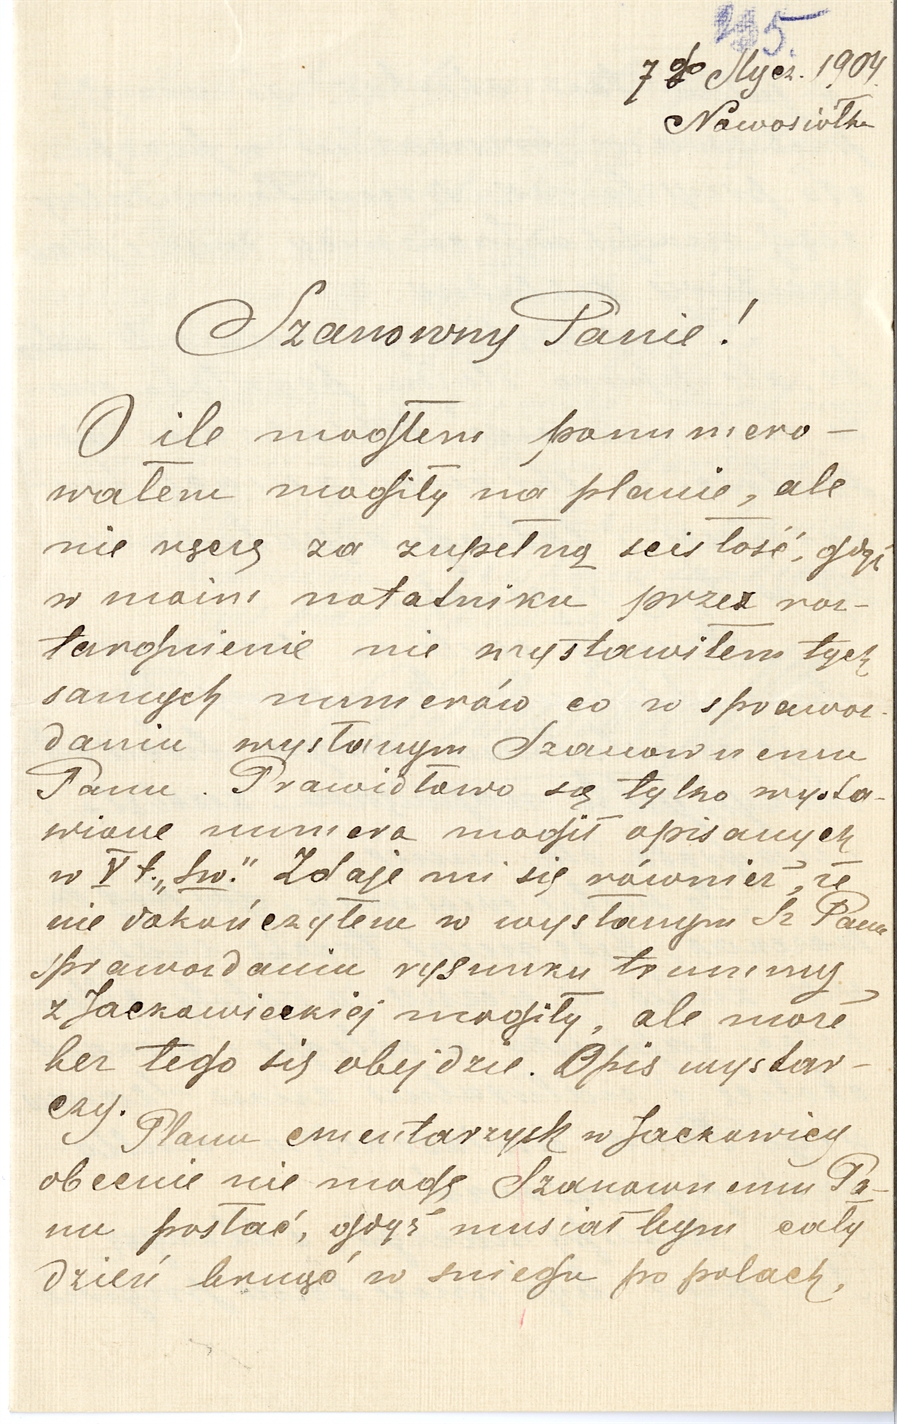 7 go Stycz. 1904
Nowosiółka
Szanowny Panie!
O ile mogłem ponumero-
wałem mogiły na planie, ale
nie ręczę za zupełną ścisłość, gdyż
w moim notatniku przez roz-
targnienie nie wystawiłem tych
samych numerów co w sprawoz-
daniu wysłanym Szanownemu
Panu. Prawidłowo są tylko wysta-
wione numera mogił opisanych
w V t. „Św." Zdaje mi się również, że
nie dokończyłem w wysłanym Sz Panu
sprawozdaniu rysunku trumny
z Jackowieckiej mogiły, ale może
bez tego się obejdzie. Opis wystar-
czy.
Planu cmentarzysk w Jackowicy
obecnie nie mogę Szanownemu Pa-
nu posłać, gdyż musiałbym cały
dzień brnąć w sniegu po polach,